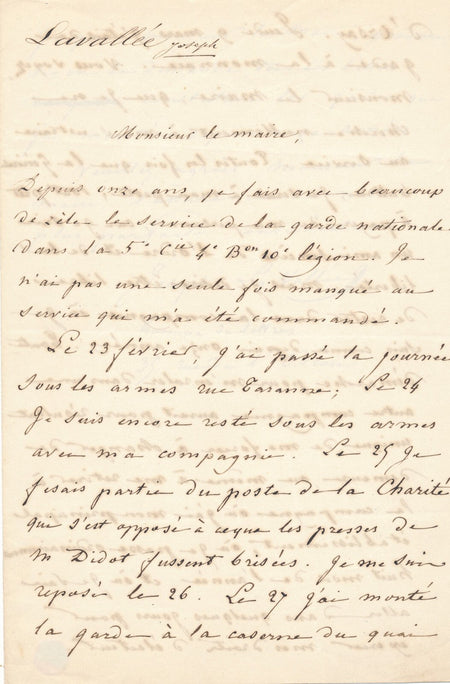 Lavallée Joseph
Monsieur le maire,
Depuis onze ans, je fais avec beaucoup
de zèle le service de la garde nationale
dans la 5e Cie 4e Bon 10e légion. Je
n'ai pas une seule fois manqué au
service qui m'a été commandé.
Le 23 février, j'ai passé la journée
sous les armes rue Taranne; Le 24
Je suis encore resté sous les armes
avec ma compagnie. Le 25 Je
fesais partie du poste de la Charité
qui s'est opposé à ceque les presses de
m Didot fussent brisées. Je me suis
reposé le 26. Le 27 j'ai monté
la garde à la caserne du quai